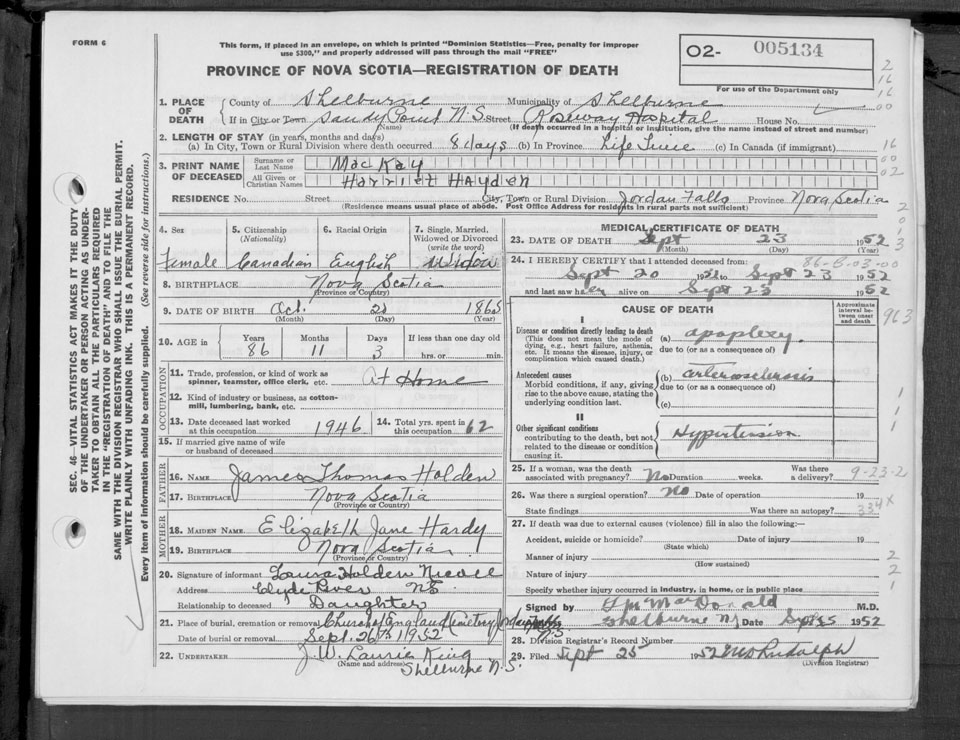 FORM 6
This form, if placed in an envelope, on which is printed "Dominion Statistics—Free, penalty for improper
use $300," and properly addressed will pass through the mail "FREE"
PROVINCE OF NOVA SCOTIA—REGISTRATION OF DEATH
O2- 005134
For use of the Department only
1. PLACE OF DEATH { County of Shelburne Municipality of Shelburne
If in City or Town Sandy Point N.S. Street Roseway Hospital House No.
(Name) (If death occurred in a hospital or institution, give the name instead of street and number)
2. LENGTH OF STAY (in years, months and days)
(a) In City, Town or Rural Division where death occurred 8 days (b) In Province Life Time (c) In Canada (if immigrant)
3. PRINT NAME OF DECEASED { Surname or Last Name MacKay
All Given or Christian Names Harriet Hayden
RESIDENCE No. Street City, Town or Rural Division Jordan Falls Province Nova Scotia
(Residence means usual place of abode. Post Office Address for residents in rural parts not sufficient)
4. Sex 5. Citizenship (Nationality) 6. Racial Origin 7. Single, Married, Widowed or Divorced (write the word)
Female Canadian English Widow
8. BIRTHPLACE Nova Scotia
(Province or Country)
9. DATE OF BIRTH Oct. 20 1865
(Month) (Day) (Year)
10. AGE in { Years Months Days If less than one day old
86 11 3 hrs. or min.
OCCUPATION
11. Trade, profession, or kind of work as spinner, teamster, office clerk, etc. At Home
12. Kind of industry or business, as cotton-mill, lumbering, bank, etc.
13. Date deceased last worked at this occupation 1946 14. Total yrs. spent in this occupation 62
15. If married give name of wife or husband of deceased
FATHER
16. NAME James Thomas Holden
17. BIRTHPLACE Nova Scotia
(Province or Country)
MOTHER
18. MAIDEN NAME Elizabeth Jane Hardy
19. BIRTHPLACE Nova Scotia
(Province or Country)
20. Signature of informant Laura Holden
Address Clyde River NS
Relationship to deceased Daughter
21. Place of burial, cremation or removal Church of England Cemetery Jordan N.S
Date of burial or removal Sept. 26th 1952
22. UNDERTAKER J. W. Laurie King
(Name and address) Shelburne N.S.
MEDICAL CERTIFICATE OF DEATH
23. DATE OF DEATH Sept 23 1952
(Month) (Day) (Year)
86-B-03-00
24. I HEREBY CERTIFY that I attended deceased from:
Sept 20 1952 to Sept 23 1952
and last saw her alive on Sept 23 1952
CAUSE OF DEATH
Approximate interval between onset and death
I
Disease or condition directly leading to death
(This does not mean the mode of dying, e.g., heart failure, asthenia, etc. It means the disease, injury, or complication which caused death.)
(a) apoplexy.
due to (or as a consequence of)
Antecedent causes
Morbid conditions, if any, giving rise to the above cause, stating the underlying condition last.
(b) arteriosclerosis
due to (or as a consequence of)
(c)
II
Other significant conditions
contributing to the death, but not related to the disease or condition causing it.
Hypertension.
25. If a woman, was the death associated with pregnancy? No Duration weeks. Was there a delivery?
9-23-2
26. Was there a surgical operation? No Date of operation 19
State findings Was there an autopsy?
334 X
27. If death was due to external causes (violence) fill in also the following:—
Accident, suicide or homicide? Date of injury 19
(State which)
Manner of injury
(How sustained)
Nature of injury
Specify whether injury occurred in industry, in home, or in public place
Signed by MacDonald M.D.
Shelburne NS Date Sept 25 1952
28. Division Registrar's Record Number
29. Filed Sept 25 1952 Rudolph
(Division Registrar)
SEC. 46—VITAL STATISTICS ACT MAKES IT THE DUTY
OF THE UNDERTAKER OR PERSON ACTING AS UNDER-
TAKER TO OBTAIN ALL THE PARTICULARS REQUIRED
IN THE "REGISTRATION OF DEATH" AND TO FILE THE
SAME WITH THE DIVISION REGISTRAR WHO SHALL ISSUE THE BURIAL PERMIT.
WRITE PLAINLY WITH UNFADING INK. THIS IS A PERMANENT RECORD.
Every item of information should be carefully supplied. (See reverse side for instructions.)
2
16
16
00
16
00
02
963
1
1
1
2
2
1